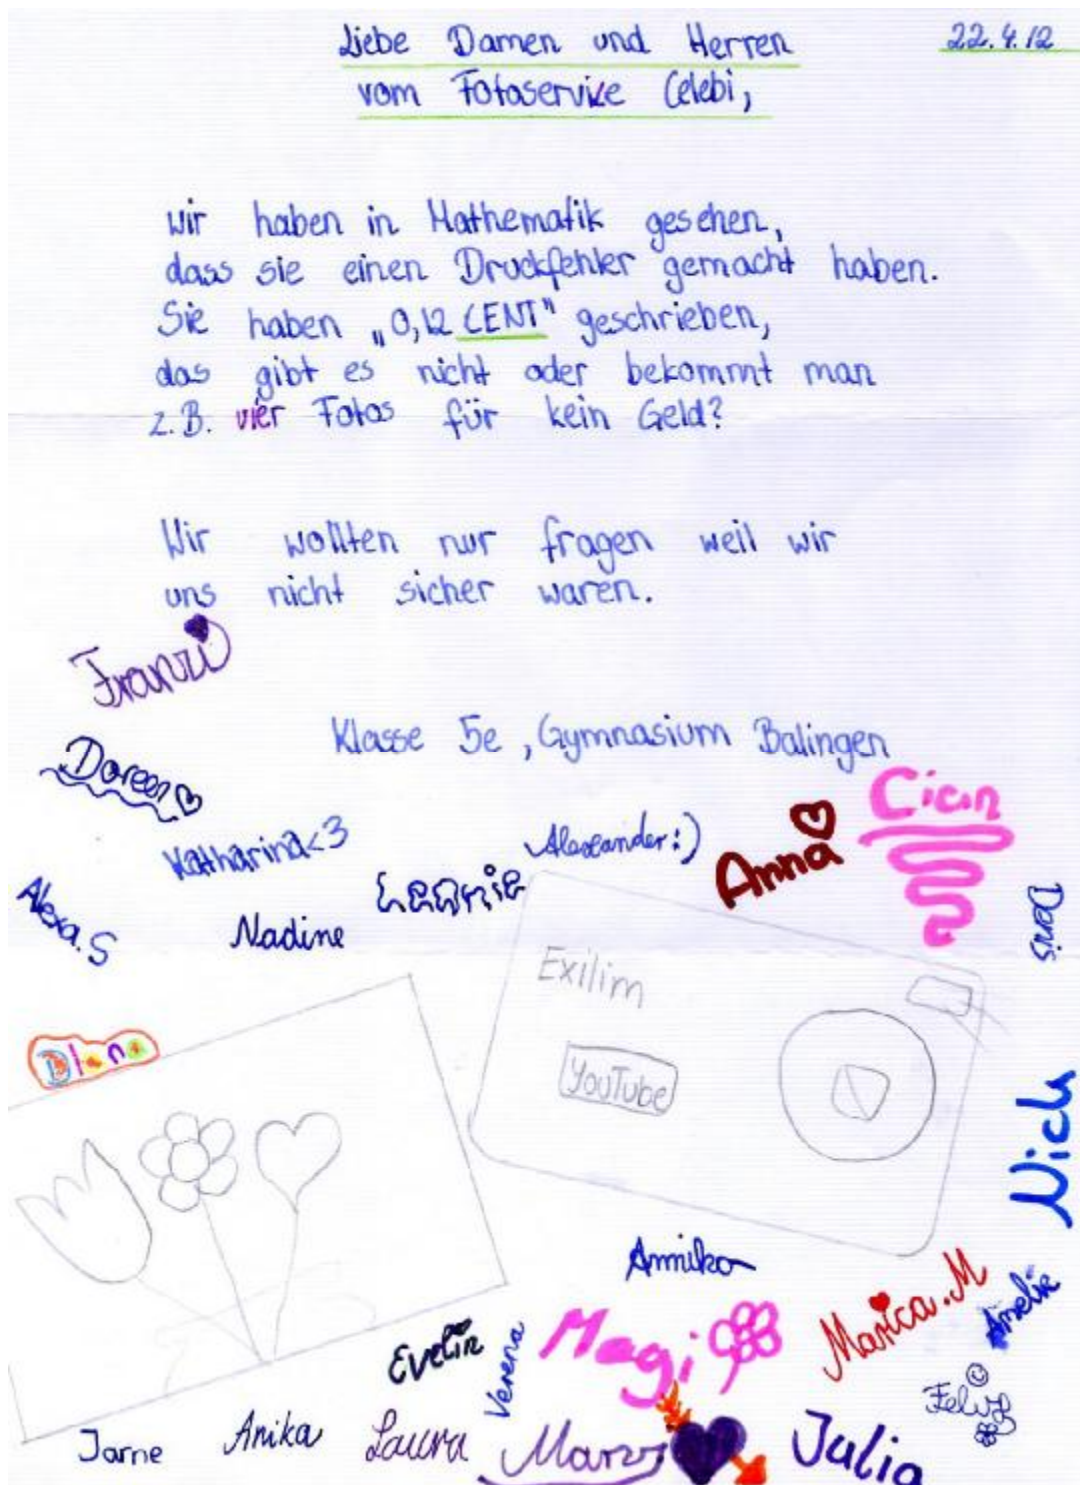 Liebe Damen und Herren
22.4.12
vom Fotoservice Celebi,
wir haben in Mathematik gesehen,
dass sie einen Druckfehler gemacht haben.
Sie haben „0,12 CENT" geschrieben,
das gibt es nicht oder bekommt man
z.B. vier Fotos für kein Geld?
Wir wollten nur fragen weil wir
uns nicht sicher waren.
Franzi
Klasse 5e, Gymnasium Balingen
Doreen
Cian
Katharina<3
Alexander:)
Anna
Alexa.S
Nadine
Leonie
Denis
Exilim
YouTube
Diana
Nick
Annika
Marica.M
Amelie
Evelin
Verena
Magi
Jarne
Anika
Laura
Julia